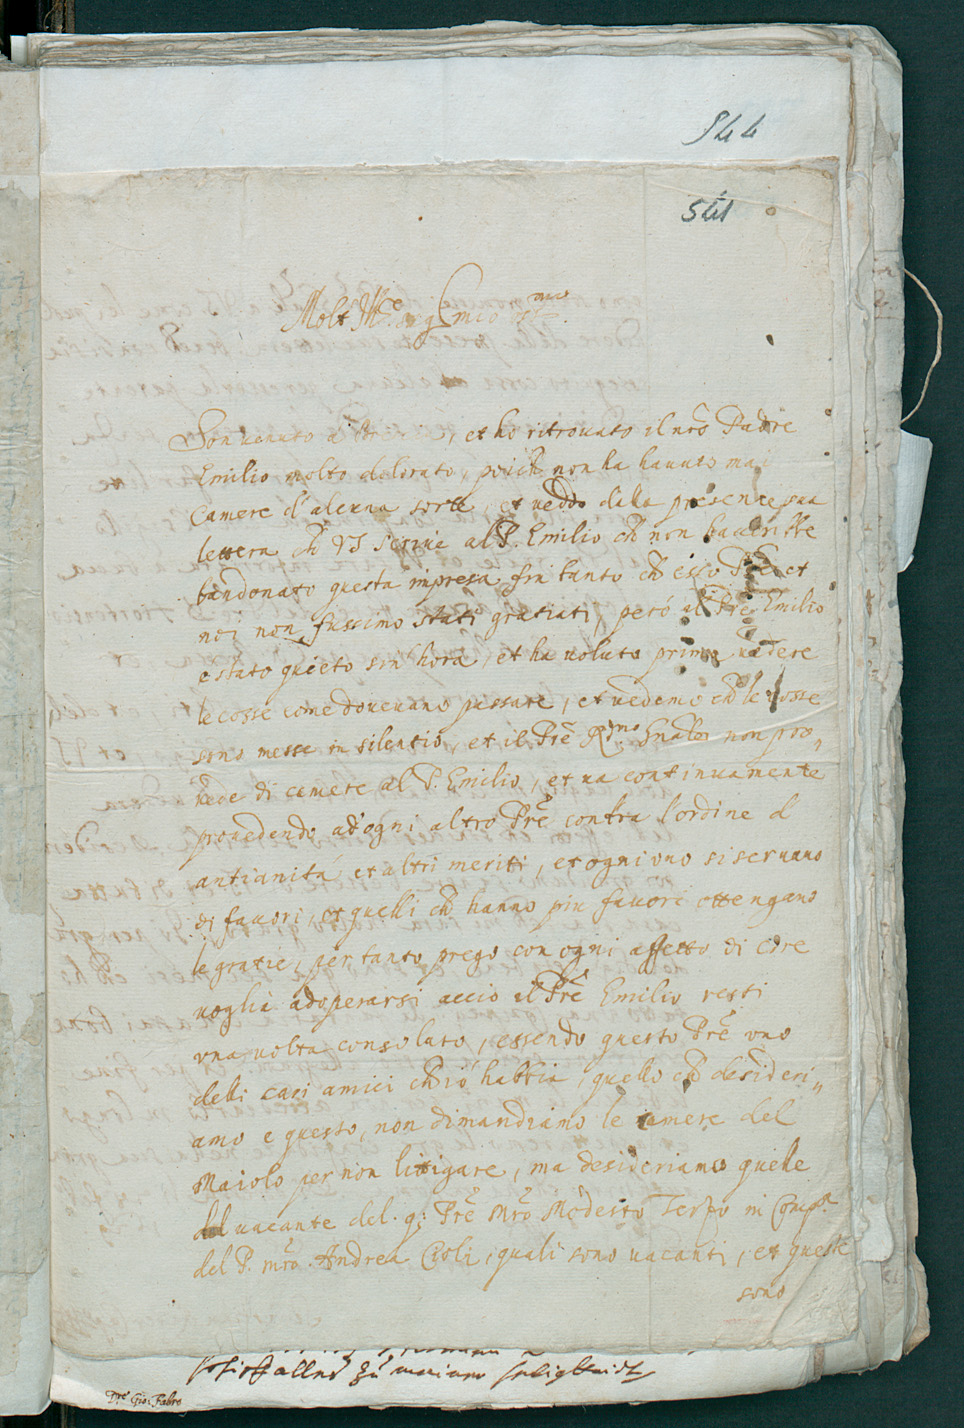 544
541
Molt Ill.re Sig.r mio
Son venuto a , et ho ritrovato il nr̃o Padre
Emilio molto dolorato, poich̃ non ha havuto mai
camere d'alcuna sorte, et veddo dalla presente sua
lettera ch̃ VS scrive al P. Emilio ch̃ non haverebbe
bandonato questa impresa fin tanto ch̃ esso Prẽ et
noi non fussimo stati gratiati, però il Prẽ Emilio
e stato quieto sin hora, et ha voluto prima vedere
le cosse come dovevano passare, et vedemo ch̃ le cosse
sono messe in silentio, et il Prẽ R.mo non pro„
vede di camere al P. Emilio, et va continuamente
provedendo ad'ogni altro Prẽ contra l'ordine d
antianità, et altri meriti, et ogni vno si servano
di favori, et quelli ch̃ hanno più favore ottengano
le gratie, per tanto prego con ogni affetto di core
voglia adoperarsi acciò il Prẽ Emilio resti
vna volta consolato, essendo questo Prẽ vno
delli cari amici ch̃ iò habbia, quello ch̃ desideri„
amo e questo, non dimandiamo le camere del
Maiolo per non littigare, ma desideriamo quelle
del vacante del q: Prẽ Mrõ Modesto in Comp.a
del P. mrõ Andrea Cioli, quali sono vacanti, et queste
sono
zu
Prẽ Gio: Fabro